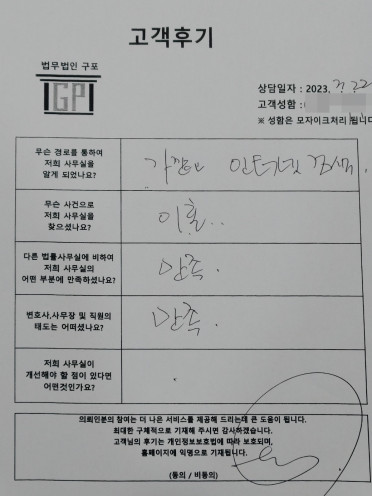 고객후기
법무법인 구포
GP
상담일자 : 2023. 7. 22
고객성함 :
※ 성함은 모자이크처리 됩니다
무슨 경로를 통하여
저희 사무실을
알게 되었나요?
인터넷 검색.
무슨 사건으로
저희 사무실을
찾으셨나요?
이혼..
다른 법률사무실에 비하여
저희 사무실의
어떤 부분에 만족하셨나요?
만족.
변호사,사무장 및 직원의
태도는 어떠셨나요?
만족.
저희 사무실이
개선해야 할 점이 있다면
어떤것인가요?
.
의뢰인분의 참여는 더 나은 서비스를 제공해 드리는데 큰 도움이 됩니다.
최대한 구체적으로 기재해 주시면 감사하겠습니다.
고객님의 후기는 개인정보보호법에 따라 보호되며,
홈페이지에 익명으로 기재됩니다.
(동의 / 비동의)